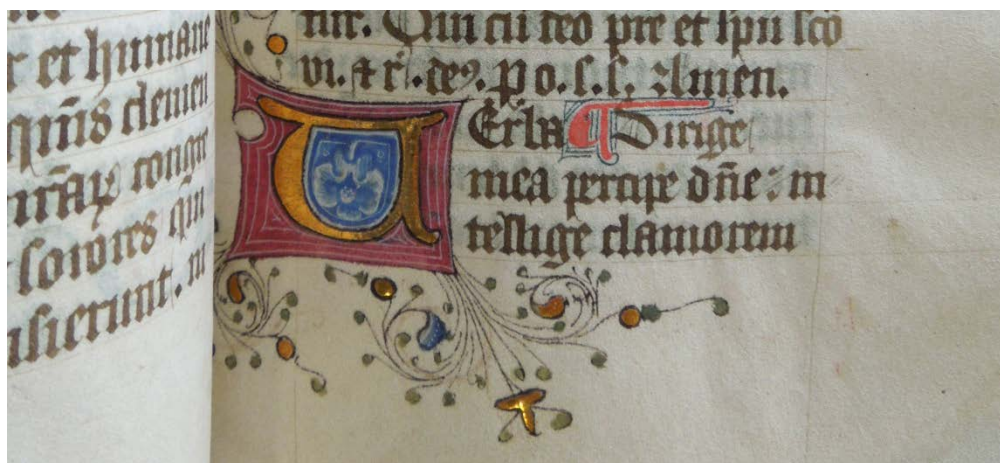 r et humane
quis clemen
congre
sorores
sierunt. in
tur. Qui cū deo pre et spū scō
vi. et r. de9. p o. s. s. Amen.
VErba A Dirige
mea percipe dñe: in
tellige clamorem